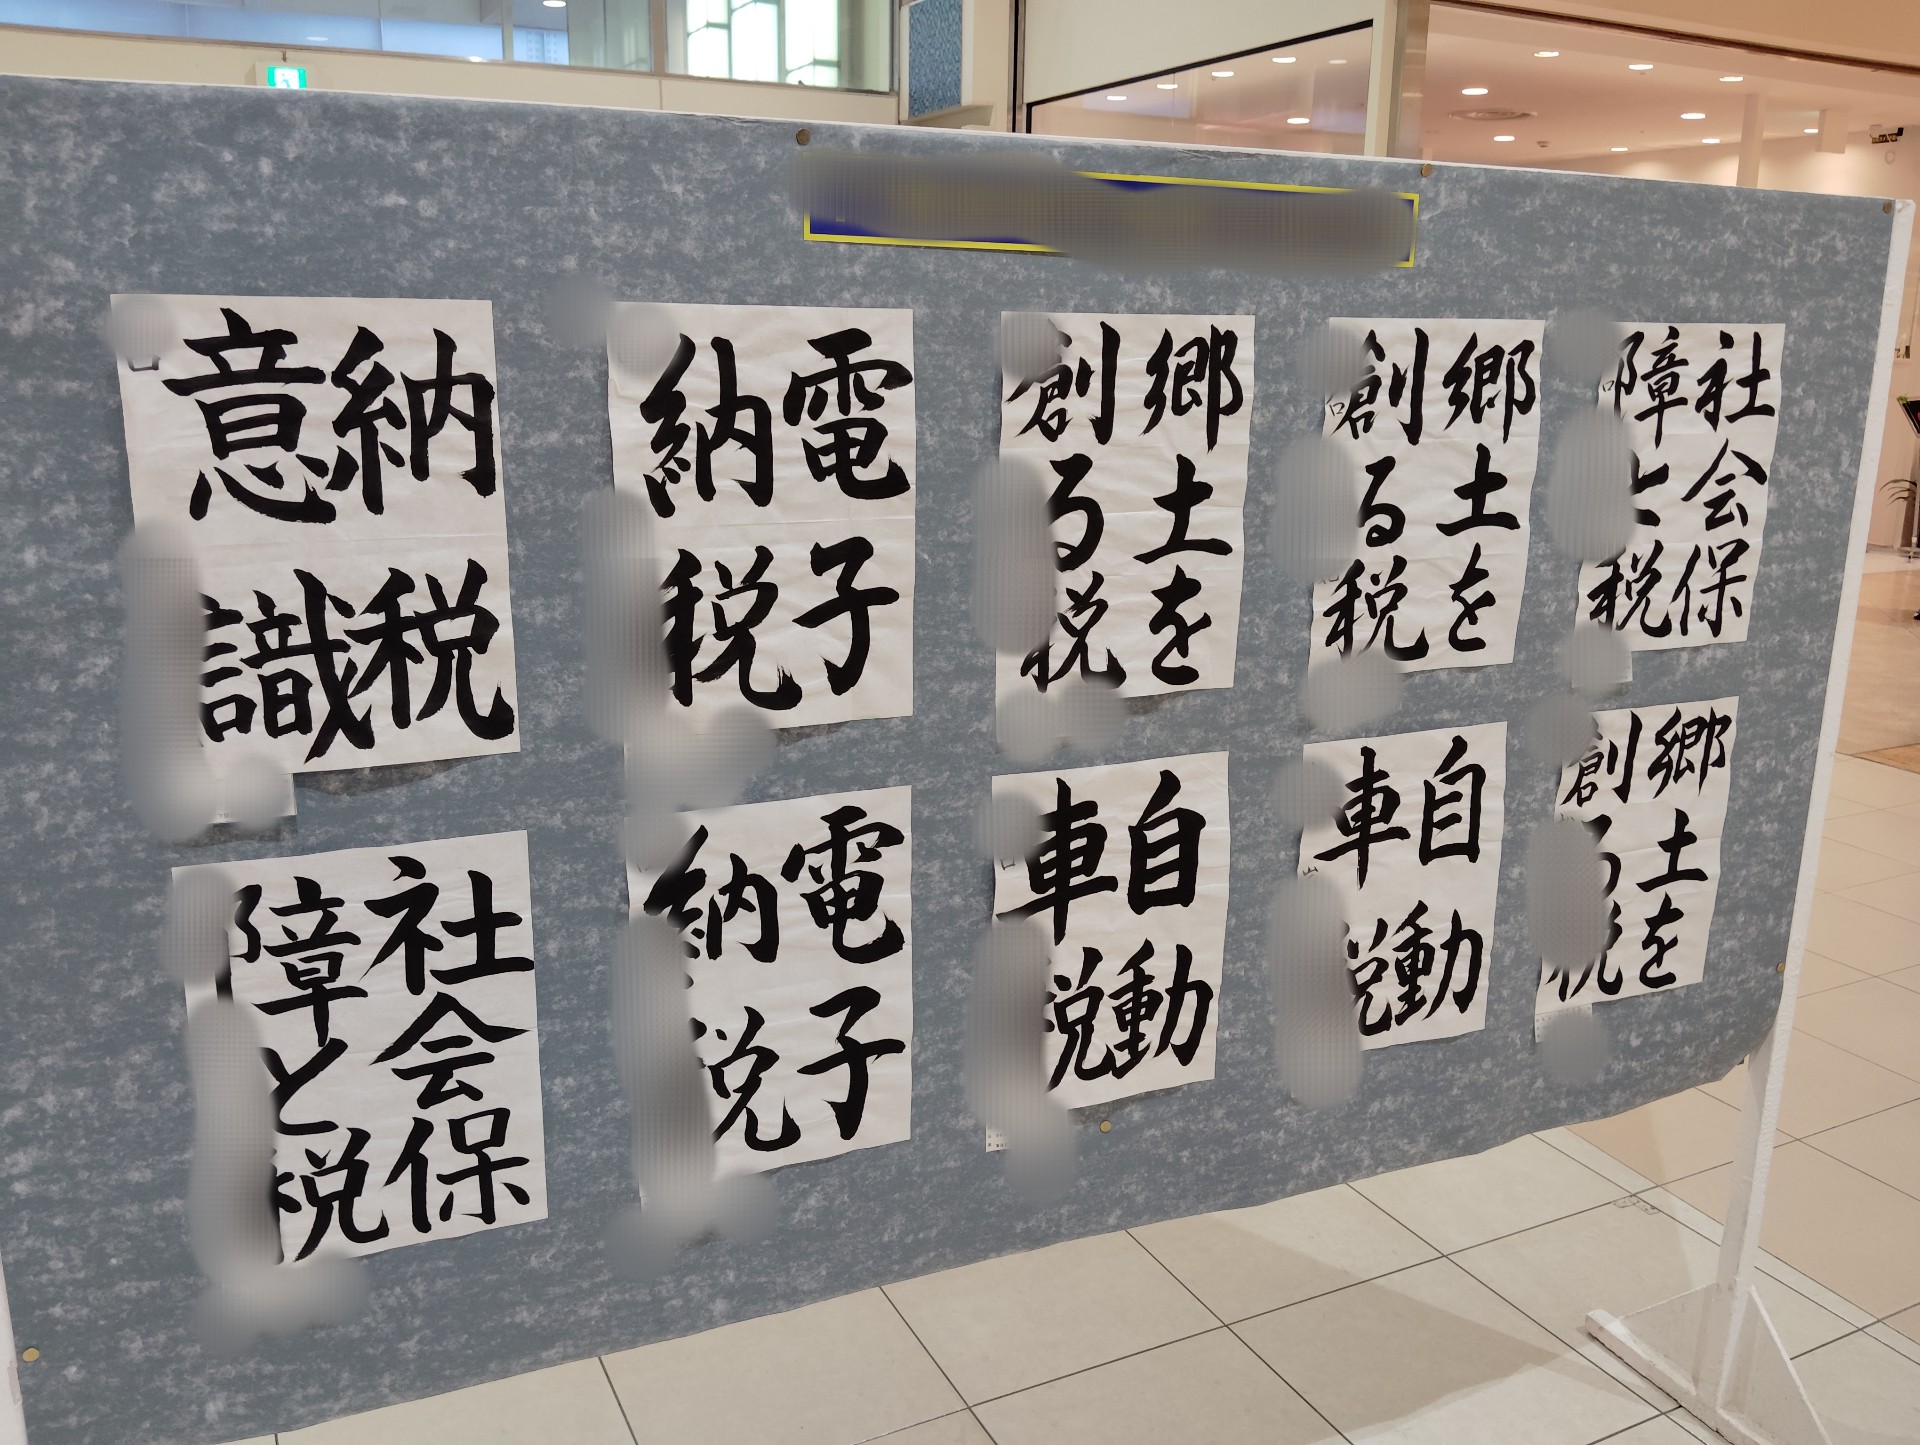 納税
意識
電子
納税
郷土を
創る税
郷土を
創る税
社会保
障と税
社会保
障と税
電子
納税
自動
車税
自動
車税
郷土を
創る税